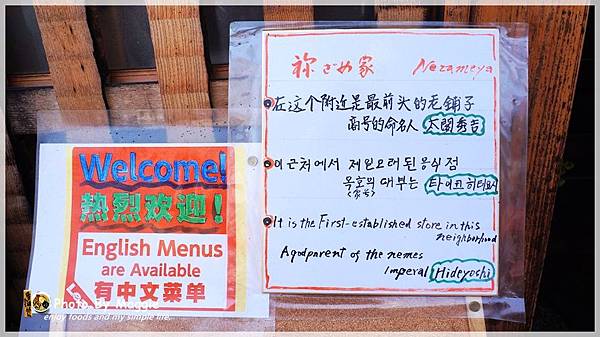 Welcome!
热烈欢迎！
English Menus
are Available
有中文菜单
祢ざめ家 Nezameya
在这个附近是最前头的老铺子
商号的命名人 太閤秀吉
이 근처에서 제일 오래된 음식점
옥호의 대부는 타이코 히데요시
It is the First-established store in this
neighborhood
A godparent of the names
Imperal Hideyoshi
Photo By Maggie
enjoy foods and my simple life...